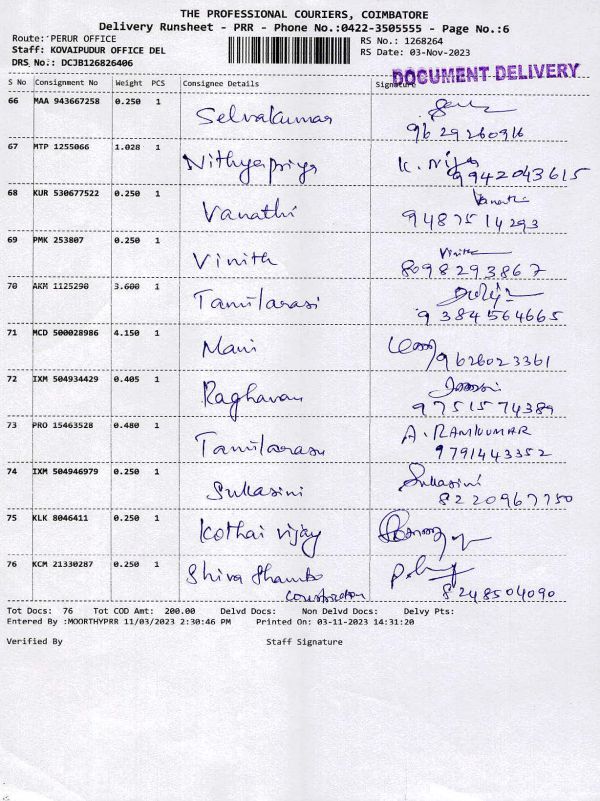 THE PROFESSIONAL COURIERS, COIMBATORE
Delivery Runsheet - PRR - Phone No.:0422-3505555 - Page No.:6
Route: PERUR OFFICE
RS No.: 1268264
Staff: KOVAIPUDUR OFFICE DEL
RS Date: 03-Nov-2023
DRS No.: DCJB126826406
DOCUMENT DELIVERY
S No Consignment No Weight PCS Consignee Details Signature
66 MAA 943667258 0.250 1 Selvakumar
9629260916
67 MTP 1255066 1.028 1 Nithyapriya K. Nithya
9942043615
68 KUR 530677522 0.250 1 Vanathi Vanathi
9487514293
69 PMK 253807 0.250 1 Vinith Vinith
8098293867
70 AKM 1125290 3.600 1 Tamilarasi
9384564665
71 MCD 500028986 4.150 1 Mani 9626023361
72 IXM 504934429 0.405 1 Raghavan
9751574389
73 PRO 15463528 0.480 1 Tamilarasu A. RAMKUMAR
9791443352
74 IXM 504946979 0.250 1 Sukasini Sukasini
8220967750
75 KLK 8046411 0.250 1 Kothai vijay
76 KCM 21330287 0.250 1 Shiva Shambo
8248504090
Tot Docs: 76 Tot COD Amt: 200.00 Delvd Docs: Non Delvd Docs: Delvy Pts:
Entered By :MOORTHYPRR 11/03/2023 2:30:46 PM Printed On: 03-11-2023 14:31:20
Verified By Staff Signature